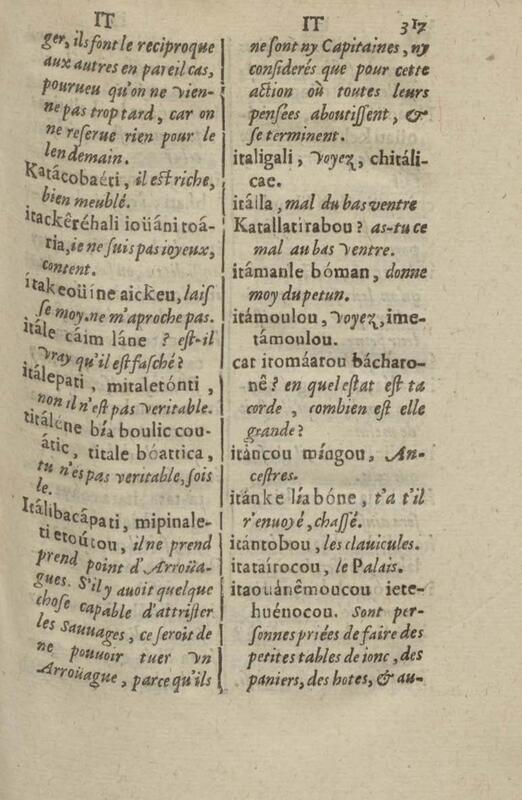 IT
ger, ils font le reciproque
aux autres en pareil cas,
pourueu qu'on ne vien-
ne pas trop tard, car on
ne reserue rien pour le
lendemain.
Katácobaéti, il est riche,
bien meublé.
itackêréhali ioüáni toá-
ria, ie ne suis pas ioyeux,
content.
itakeoüíne aickeu, lais
se moy. ne m'aproche pas.
itále cáim láne ? est-il
vray qu'il est fasché?
itálepati, mitaletónti,
non il n'est pas veritable.
titáléne bía boulic cou-
átic, titale bóattica,
tu n'es pas veritable, sois
le.
Itálibacápati, mipinale-
tietoútou, il ne prend
prend point d'Arroüa-
gues. S'il y auoit quelque
chose capable d'attrister
les Sauuages, ce seroit de
ne pouuoir tuer vn
Arroüague, parce qu'ils
IT 317
ne sont ny Capitaines, ny
considerés que pour cette
action où toutes leurs
pensées aboutissent, &
se terminent.
italigali, voyez, chitáli-
cae.
itálla, mal du bas ventre
Katallatirabou? as-tu ce
mal au bas ventre.
itámanle bóman, donne
moy du petun.
itámoulou, voyez, ime-
támoulou.
cat iromáatou bácharo-
nê? en quel estat est ta
corde, combien est elle
grande?
itáncou míngou, An-
cestres.
itánke líabóne, t'a t'il
r'enuoyé, chassé.
itántobou, les clauicules.
itataírocou, le Palais.
itaouánêmoucou iete-
huénocou. Sont per-
sonnes priées de faire des
petites tables de ionc, des
paniers, des hotes, & au-